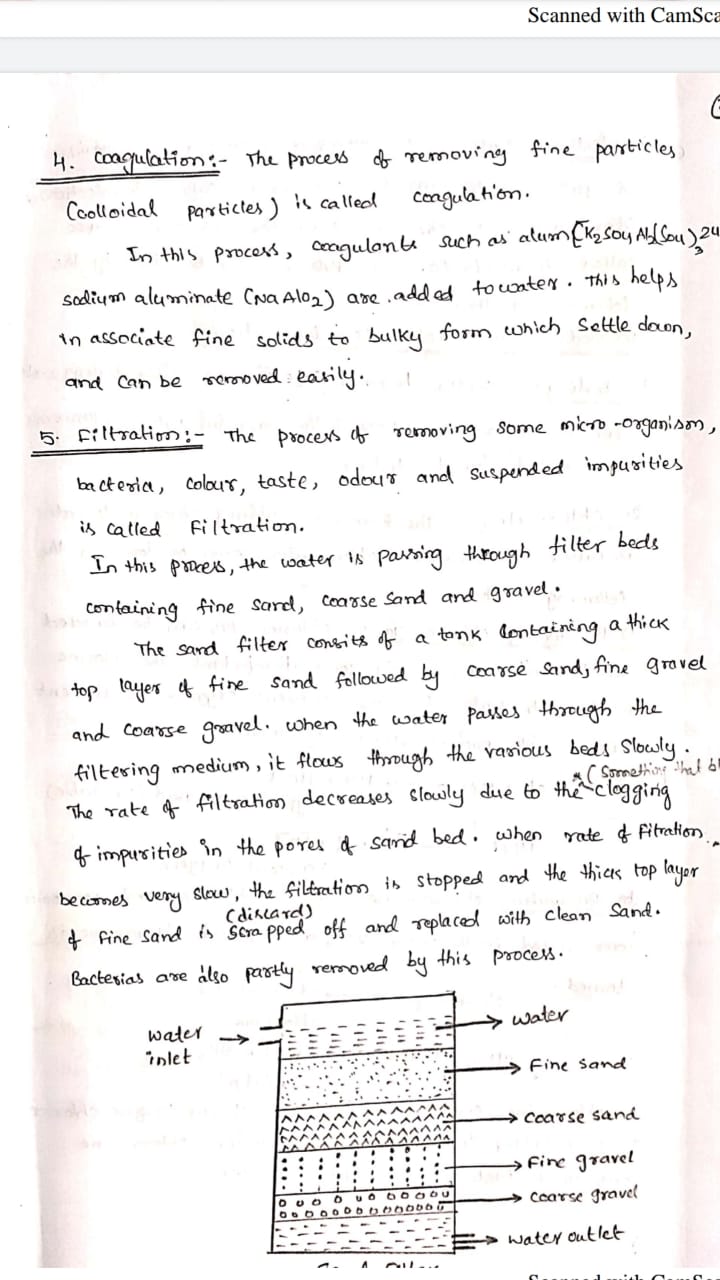 Scanned with CamSca
4. Coagulation:- The process of removing fine particles
(colloidal particles) is called coagulation.
In this process, coagulants such as alum [K2SO4 Al2(SO4)3 24
sodium aluminate (NaAlO2) are added to water. This helps
in associate fine solids to bulky form which settle down,
and can be removed easily.
5. Filtration:- The process of removing some micro-organism,
bacteria, colour, taste, odour and suspended impurities
is called Filtration.
In this process, the water is passing through filter beds
containing fine sand, coarse sand and gravel.
The sand filter consits of a tank containing a thick
top layer of fine sand followed by coarse sand, fine gravel
and coarse gravel. when the water passes through the
filtering medium, it flows through the various beds slowly.
(Something that bl
The rate of filtration decreases slowly due to the clogging
of impurities in the pores of sand bed. when rate of Fitration
becomes very slow, the filtration is stopped and the thick top layer
(discard)
of fine sand is scrapped off and replaced with clean sand.
Bacterias are also partly removed by this process.
water inlet
water
Fine sand
Coarse sand
Fine gravel
Coarse gravel
water outlet